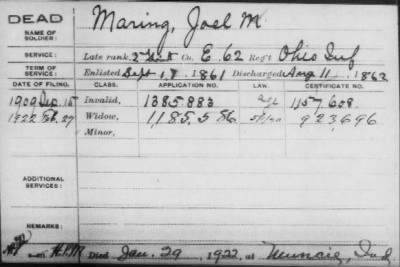 DEAD
NAME OF SOLDIER: Maring, Joel M.
SERVICE: Late rank, 2nd Lieut Co. E. 62 Reg't Ohio Inf
TERM OF SERVICE: Enlisted Sept 18, 1861 Discharged Aug 11, 1863
DATE OF FILING. CLASS. APPLICATION NO. LAW. CERTIFICATE NO.
1909 Sep. 15 Invalid, 1385883 1157608
1922 Feb. 27 Widow, 1,185,586 923,696
Minor,
ADDITIONAL SERVICES:
REMARKS:
Died Jan. 29, 1922, at Muncie, Ind